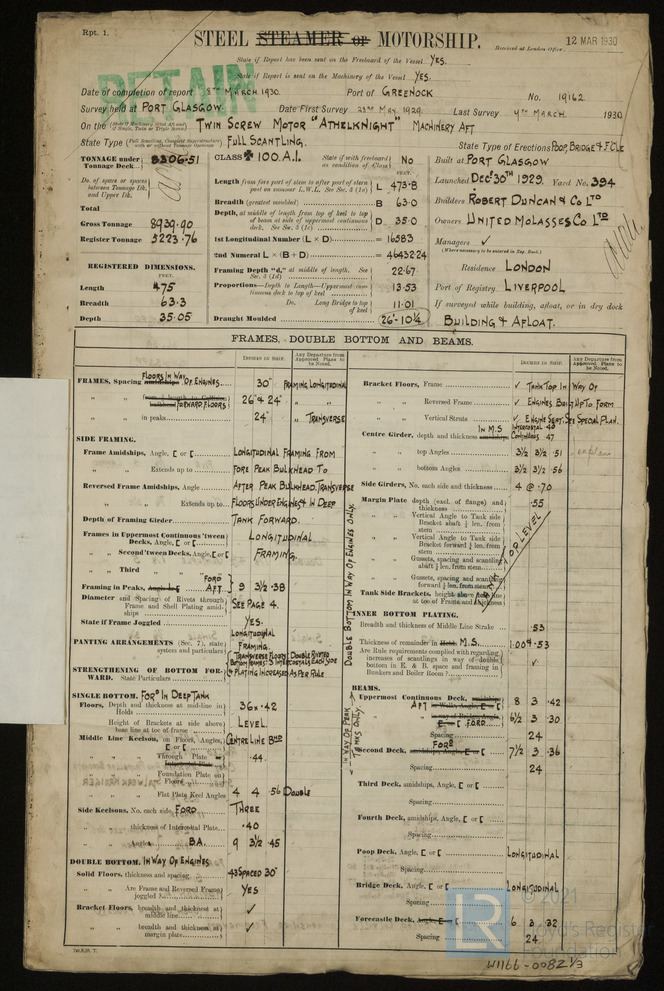 Rpt. 1.
STEEL STEAMER or MOTORSHIP.
Received at London Office
12 MAR 1930
RETAIN
State if Report has been sent on the Freeboard of the Vessel YES.
State if Report is sent on the Machinery of the Vessel YES.
Date of completion of report 8TH MARCH 1930. Port of GREENOCK
No. 19162
Survey held at PORT GLASGOW. Date First Survey 23RD MAY 1929. Last Survey 4TH MARCH 1930
On the TWIN SCREW MOTOR "ATHELKNIGHT" MACHINERY AFT
State Type FULL SCANTLING. State Type of Erections POOP, BRIDGE & F'CLE
TONNAGE under Tonnage Deck 8306.51
CLASS ✠ 100.A.1. State if with freeboard as condition of Class No
Built at PORT GLASGOW
Launched DEC 30TH 1929. Yard No. 394
Length from fore part of stem to after part of stern post on summer L.W.L. See Sec. 3 (1c) L 473.8
Breadth (greatest moulded) B 63.0
Builders ROBERT DUNCAN & CO LTD
Total
Gross Tonnage 8939.90
Register Tonnage 5223.76
Depth, at middle of length from top of keel to top of beam at side of uppermost continuous deck. See Sec. 3 (1c) D 35.0
Owners UNITED MOLASSES CO LTD
1st Longitudinal Number (L × D) = 16583
Managers ✓
2nd Numeral L × (B + D) = 4643224
Residence LONDON
REGISTERED DIMENSIONS.
FEET.
Framing Depth "d," at middle of length. See Sec. 3 (1d) 22.67
Length 475
Proportions—Depth to Length—Uppermost continuous deck to top of keel 13.53
Port of Registry LIVERPOOL
Breadth 63.3
Do. Long Bridge to top of keel 11.01
If surveyed while building, afloat, or in dry dock
Depth 35.05
Draught Moulded 26'-10¼
BUILDING & AFLOAT.
FRAMES, DOUBLE BOTTOM AND BEAMS.
FRAMES, Spacing FLOORS IN WAY OF ENGINES 30" FRAMING LONGITUDINAL
FORWARD FLOORS 26" & 24"
in peaks 24" " TRANSVERSE
SIDE FRAMING.
Frame Amidships, Angle, [ or [ LONGITUDINAL FRAMING FROM
Extends up to FORE PEAK BULKHEAD TO
Reversed Frame Amidships, Angle AFTER PEAK BULKHEAD. TRANSVERSE
Extends up to FLOORS UNDER ENGINES & IN DEEP
Depth of Framing Girder TANK FORWARD.
Frames in Uppermost Continuous 'tween Decks, Angle, [ or [ LONGITUDINAL
Second 'tween Decks, Angle, [ or [ FRAMING.
Third
Framing in Peaks, Angle [ FORD AFT. 9 3½ .38
Diameter and Spacing of Rivets through Frame and Shell Plating amidships SEE PAGE 4.
State if Frame Joggled YES.
PANTING ARRANGEMENTS (Sec. 7), state system and particulars LONGITUDINAL FRAMING.
STRENGTHENING OF BOTTOM FORWARD. State Particulars
& PLATING INCREASED AS PER RULE
SINGLE BOTTOM. FORD IN DEEP TANK
Floors, Depth and thickness at mid-line in Holds 36 x .42
Height of Brackets at side above base line at toe of frame LEVEL.
Middle Line Keelson, on Floors, Angles, [ or [ CENTRE LINE BHD
Through Plate .44
Foundation Plate on Floors
Flat Plate Keel Angles 4 4 .56 DOUBLE
Side Keelsons, No. each side FORD THREE
thickness of Intercostal Plate .40
Angles B.A. 9 3½ .45
DOUBLE BOTTOM. IN WAY OF ENGINES
Solid Floors, thickness and spacing .43 SPACED 30"
Are Frame and Reversed Frame joggled? YES
Bracket Floors, breadth and thickness at middle line ✓
breadth and thickness at margin plate ✓
Bracket Floors, Frame ✓ TANK TOP IN WAY OF
Reversed Frame ✓ ENGINES BUILT UP TO FORM
Vertical Struts ✓ ENGINE SEAT. SEE SPECIAL PLAN.
Centre Girder, depth and thickness IN M.S INTERCOSTAL 40 CONTINUOUS 47
top Angles 3½ 3½ .51
bottom Angles 3½ 3½ .56
Side Girders, No. each side and thickness 4 @ .70
Margin Plate depth (excl. of flange) and thickness .55
Vertical Angle to Tank side Bracket abaft ¼ len. from stem
Vertical Angle to Tank side Bracket forward ¼ len. from stem
Gussets, spacing and scantling abaft ¼ len. from stem
Gussets, spacing and scantling forward ¼ len. from stem
Tank Side Brackets, height above base line at toe of Frame and thickness
DOUBLE BOTTOM IN WAY OF ENGINES ONLY.
INNER BOTTOM PLATING.
Breadth and thickness of Middle Line Strake .53
Thickness of remainder in M.S. 1.00 & .53
Are Rule requirements complied with regarding increases of scantlings in way of double bottom in E. & B. space and framing in Bunkers and Boiler Room? ✓
BEAMS.
IN WAY OF PEAK TANKS ONLY.
Uppermost Continuous Deck, 8 3 .42
APT
FORD. 6½ 3 .30
Spacing 24
Second Deck, FORD 7½ 3 .36
Spacing 24
Third Deck, amidships, Angle, [ or [
Spacing
Fourth Deck, amidships, Angle, [ or [
Spacing
Poop Deck, Angle, [ or [ LONGITUDINAL
Spacing
Bridge Deck, Angle, [ or [ LONGITUDINAL
Spacing
Forecastle Deck, Angle, [ or [ 6 3 .32
Spacing 24
© 2021
LR
Lloyd's Register Foundation
W1166-0082 1/3